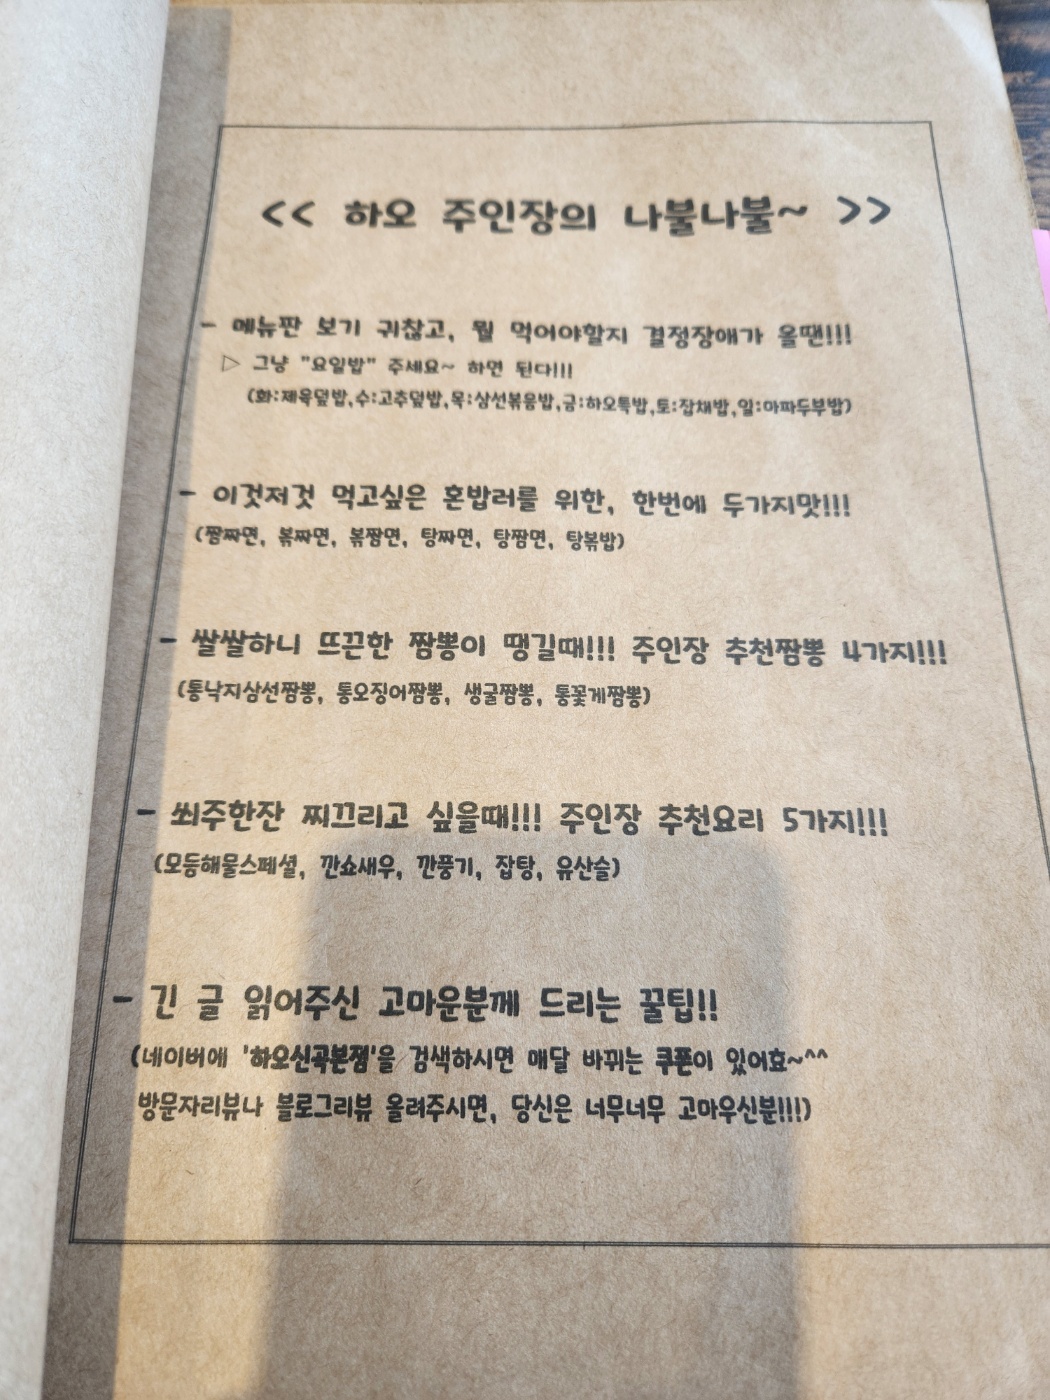 << 하오 주인장의 나불나불~ >>
- 메뉴판 보기 귀찮고, 뭘 먹어야할지 결정장애가 올땐!!!
▷ 그냥 "요일밥" 주세요~ 하면 된다!!!
(화:제육덮밥,수:고추덮밥,목:삼선볶음밥,금:하오특밥,토:잡채밥,일:마파두부밥)
- 이것저것 먹고싶은 혼밥러를 위한, 한번에 두가지맛!!!
(짬짜면, 볶짜면, 볶짬면, 탕짜면, 탕짬면, 탕볶밥)
- 쌀쌀하니 뜨끈한 짬뽕이 땡길때!!! 주인장 추천짬뽕 4가지!!!
(통낙지삼선짬뽕, 통오징어짬뽕, 생굴짬뽕, 통꽃게짬뽕)
- 쐬주한잔 찌끄리고 싶을때!!! 주인장 추천요리 5가지!!!
(모듬해물스페셜, 깐쇼새우, 깐풍기, 잡탕, 유산슬)
- 긴 글 읽어주신 고마운분께 드리는 꿀팁!!
(네이버에 '하오신곡본점'을 검색하시면 매달 바뀌는 쿠폰이 있어효~^^
방문자리뷰나 블로그리뷰 올려주시면, 당신은 너무너무 고마우신분!!!)